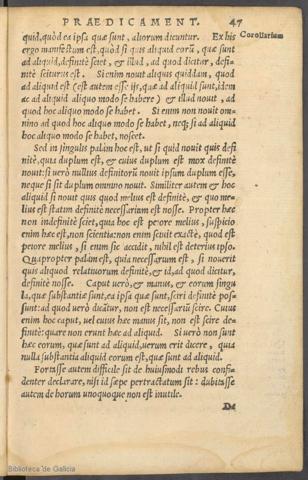 PRÆDICAMENT. 47
quid, quòd ea ipsa quæ sunt, aliorum dicuntur. Ex his Corollarium
ergo manifestum est, quòd si quis aliquid eorũ, quæ sunt
ad aliquid, definitè sciet, & illud, ad quod dicitur, defi-
nitè sciturus est. Si enim nouit aliquis quiddam, quod
ad aliquid est (est autem esse ijs, quæ ad aliquid sunt, idem
ac ad aliquid aliquo modo se habere) & illud nouit, ad
quod hoc aliquo modo se habet. Si enim non nouit om-
nino ad quod hoc aliquo modo se habet, neq; si ad aliquid
hoc aliquo modo se habet, noscet.
Sed in singulis palàm hoc est, ut si quid nouit quis defi
nitè, quia duplum est, & cuius duplum est mox definitè
nouit: si uerò nullius definitorũ nouit ipsum duplum esse,
neque si sit duplum omnino nouit. Similiter autem & hoc
aliquid si nouit quis quod melius est definitè, & quo me-
lius est statim definitè necessarium est nosse. Propter hæc
non indefinitè sciet, quia hoc est peiore melius, suspicio
enim hæc est, non scientia: non enim sciuit exactè, quod est
peiore melius, si enim sic accidit, nihil est deterius ipso.
Quapropter palàm est, quia necessarium est, si nouerit
quis aliquid relatiuorum definitè, & id, ad quod dicitur,
definitè nosse. Caput uerò, & manus, & eorum singu-
la, quæ substantiæ sunt, ea ipsa quæ sunt, sciri definitè pos-
sunt: ad quod uerò dicãtur, non est necessariũ scire. Cuius
enim hoc caput, uel cuius hæc manus sit, non est scire de-
finitè: quare non erunt hæc ad aliquid. Si uerò non sunt
hæc eorum, quæ sunt ad aliquid, uerum erit dicere, quia
nulla substantia aliquid eorum est, quæ sunt ad aliquid.
Fortasse autem difficile sit de huiusmodi rebus confi-
denter declarare, nisi id sæpe pertractatum sit: dubitasse
autem de horum unoquoque non est inutile.
De
Biblioteca de Galicia